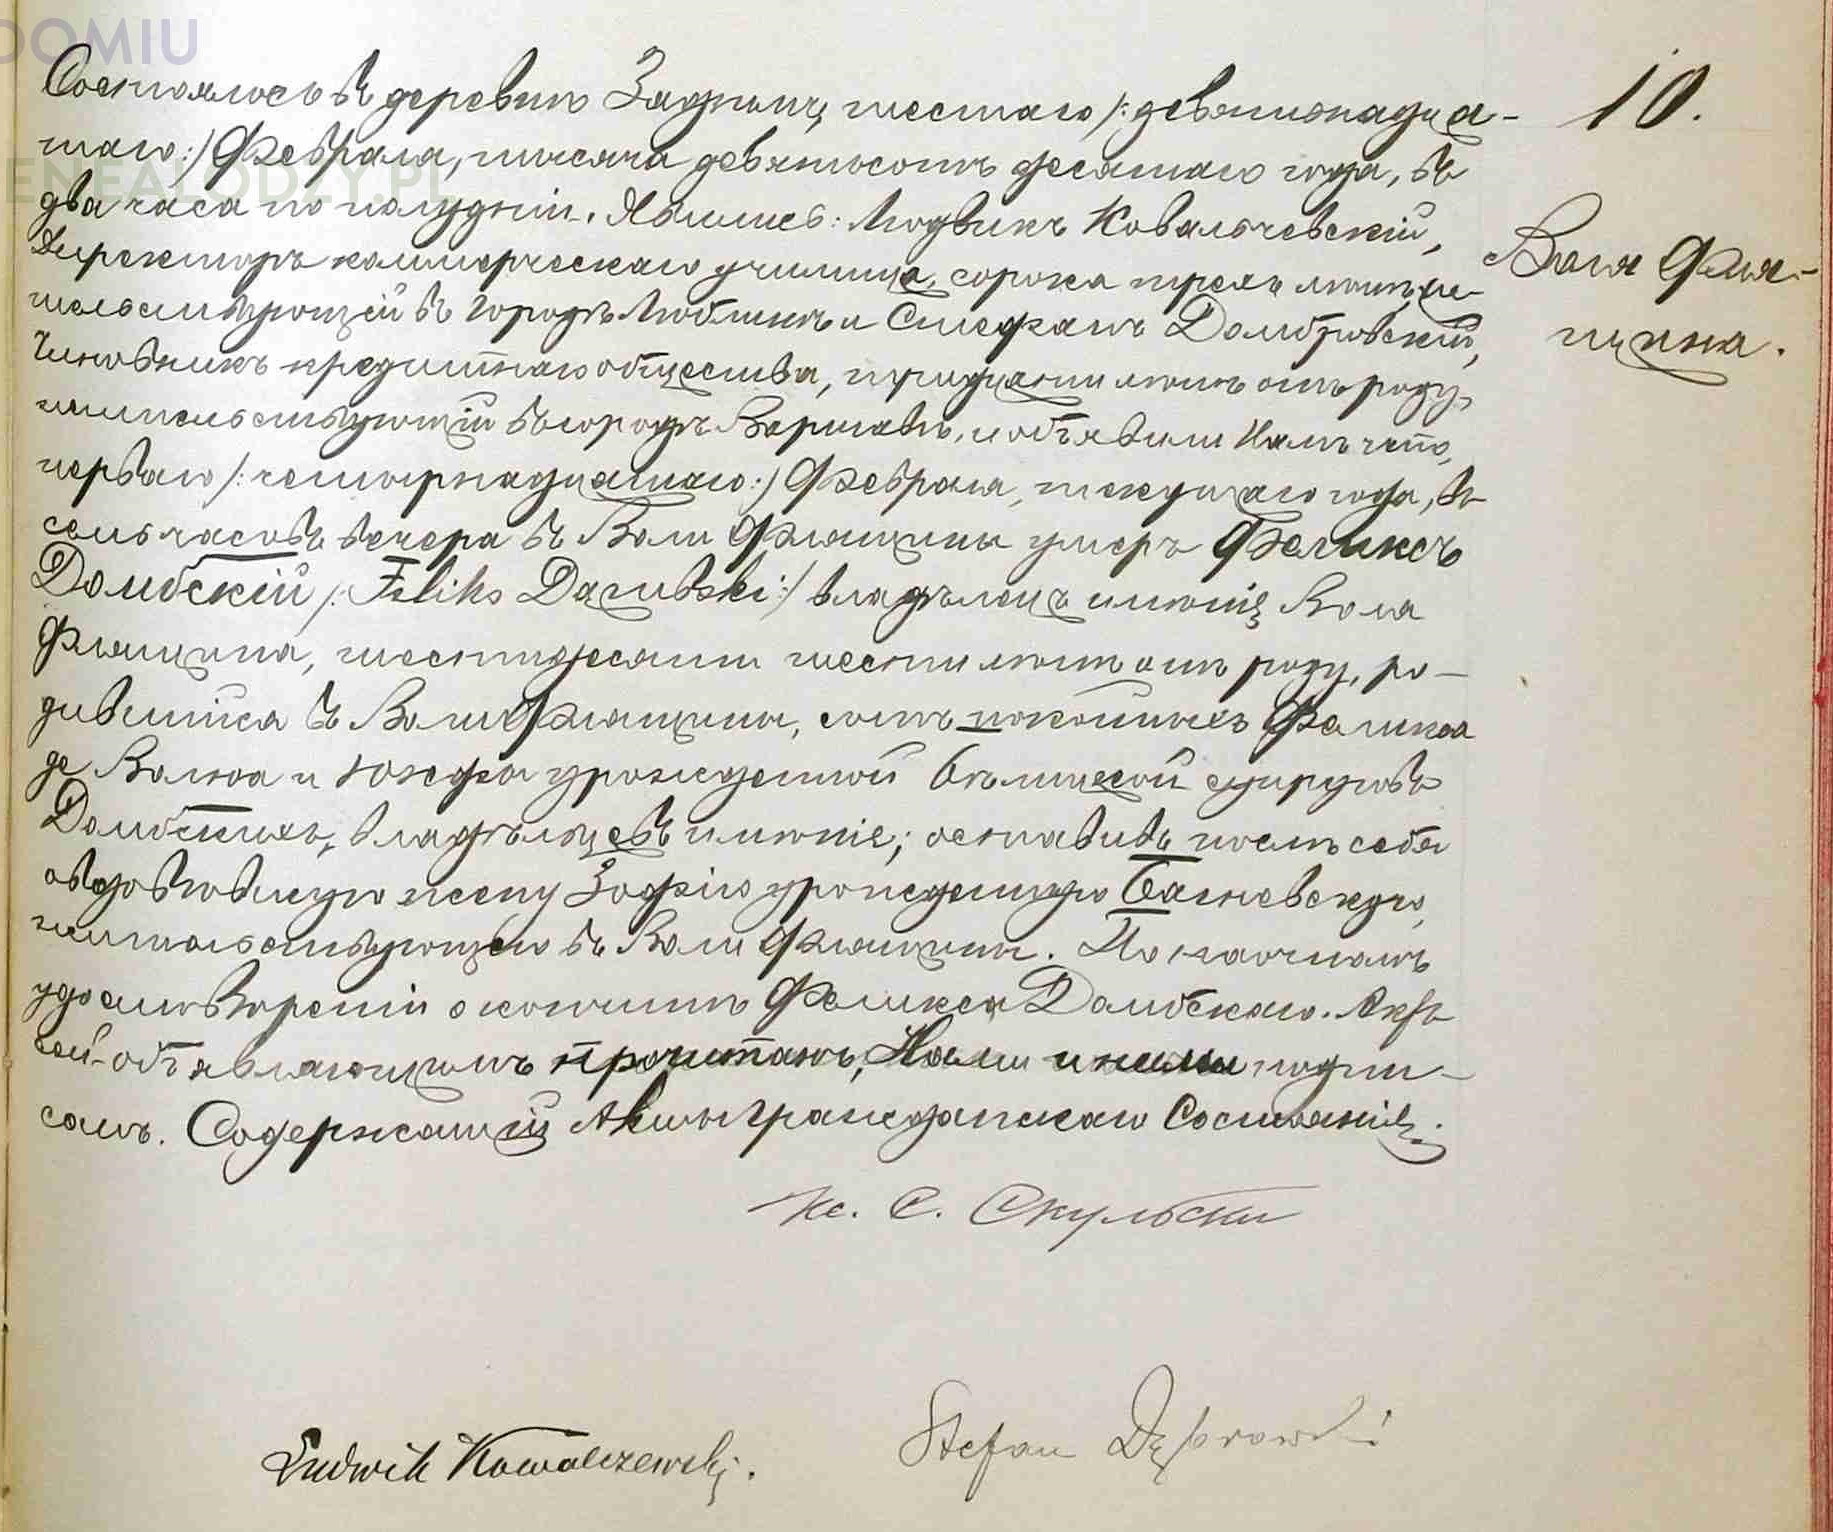 DOMIU
GENEALODZY.PL
10.
Воля Фля-
щина.
Состоялось въ деревнѣ Задзимъ, шестаго /:девятнадца-
таго:/ Февраля, тысяча девятьсотъ десятаго года, въ
два часа по полудни. Явились: Людвикъ Ковальчевскій,
Директоръ коммерческаго училища, сорока трехъ лѣтъ, жи-
тельствующій въ городѣ Люблинѣ и Стефанъ Домбровскій,
Чиновникъ кредитнаго общества, тридцати лѣтъ отъ роду,
жительствующій въ городѣ Варшавѣ, и объявили Намъ что,
перваго /:четырнадцатаго:/ Февраля, текущаго года, въ
семь часовъ вечера въ Воли Флящины умеръ Феликсъ
Домбскій /: Feliks Dąmbski :/ владѣлецъ имѣнія Воля
Флящина, шестидесяти шести лѣтъ отъ роду, ро-
дившійся въ Воли Флящины, сынъ покойныхъ Феликса
де Валюа и Юзефы урожденной Бѣлинской супруговъ
Домбскихъ, владѣльцевъ имѣнія; оставивъ послѣ себя
овдовѣвшую жену Зофію урожденную Вагневскую,
жительствующую въ Воли Флящины. По наочномъ
удостовѣреніи о кончинѣ Феликса Домбскаго. Актъ
сей объявляющимъ прочитанъ, Нами и ними подпи-
санъ. Содержащій Акты Гражданскаго Состоянія.
Кс. С. Скульски
Ludwik Kowalczewski. Stefan Dąbrowski